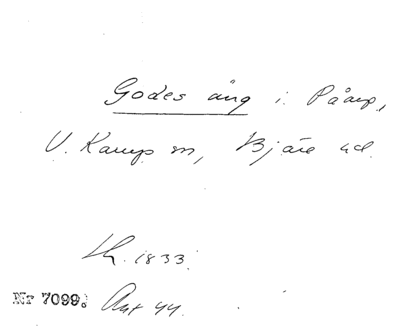 Godes äng i Påarp,
V. Karup sn, Bjäre hd.
Lh. 1833.
Nr 7099. Akt 44.